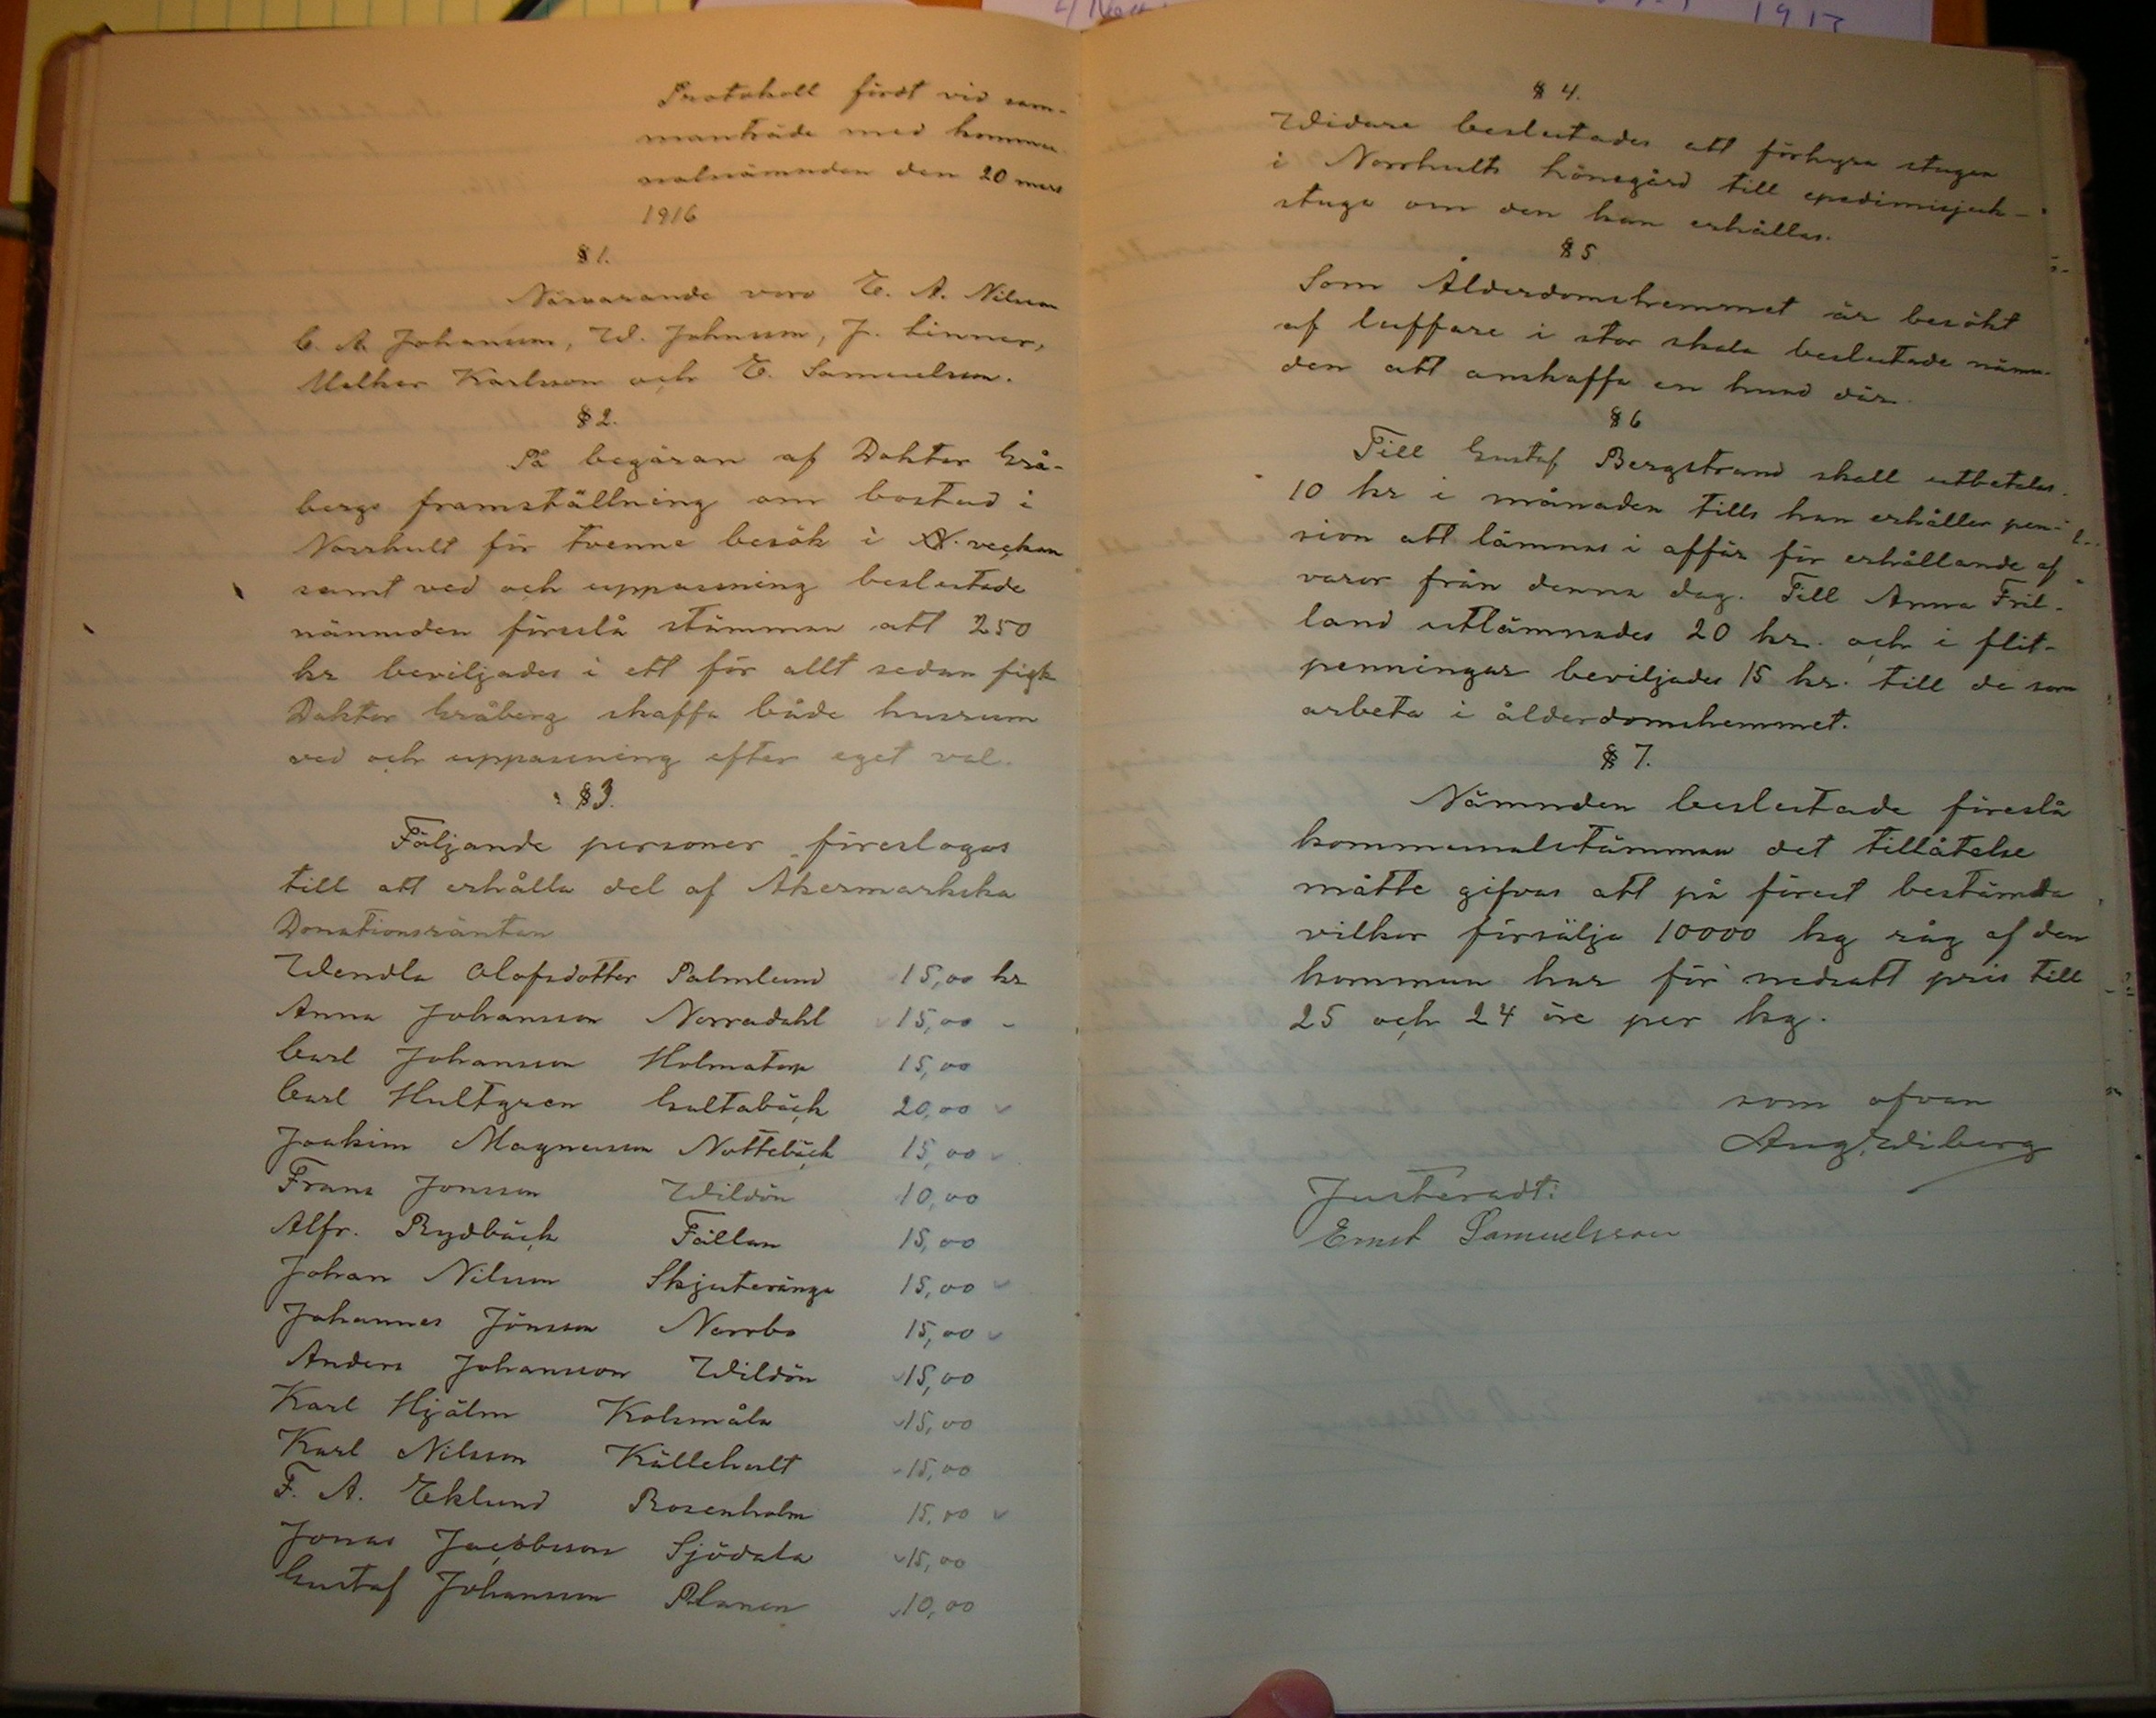 Protokoll fördt vid sam-
manträde med kommu
nalnämnden den 20 mars
1916
§ 1.
Närvarande voro E. A. Nilsson
C. A. Johansson, W. Johnsson, J. Linner,
Melker Karlsson och E. Samuelsson.
§ 2.
På begäran af Doktor Grå-
bergs framställning om bostad i
Norrhult för tvenne besök i veckan
samt ved och uppassning beslutade
nämnden föreslå stämman att 250
kr beviljades i ett för allt sedan fick
Doktor Gråberg skaffa både husrum
ved och uppassning efter eget val.
§ 3.
Följande personer föreslogos
till att erhålla del af Åkermarkska
Donationsräntan
Wendla Olofsdotter Palmlund 15,00 kr
Anna Johansson Norradahl 15,00 -
Carl Johansson Holmatorp 15,00
Carl Hultgren Galtabäck 20,00
Joakim Magnusson Nottebäck 15,00
Frans Jonsson Wildön 10,00
Alfr. Rydbäck Fällan 15,00
Johan Nilsson Skjuteränga 15,00
Johannes Jönsson Norrbo 15,00
Anders Johansson Wildön 15,00
Karl Hjälm Kolsmåla 15,00
Karl Nilsson Källehult 15,00
F. A. Eklund Rosenholm 15,00
Jonas Jacobsson Sjödala 15,00
Gustaf Johansson Planen 10,00
§ 4.
Widare beslutades att förhyra stugan
i Norrhults hönsgård till epedimisjuk-
stuga om den kan erhållas.
§ 5
Som Ålderdomshemmet är besökt
af luffare i stor skala beslutade nämn-
den att anskaffa en hund där.
§ 6
Till Gustaf Bergstrand skall utbetalas
10 kr i månaden tills han erhåller pen-
sion att lämnas i affär för erhållande af
varor från denna dag. Till Anna Fril-
land utlämnades 20 kr. och i flit-
penningar beviljades 15 kr. till de som
arbeta i ålderdomshemmet.
§ 7.
Nämnden beslutade föreslå
kommunalstämman det tillåtelse
måtte gifvas att på förest bestämda
vilkor försälja 10000 kg råg af den
kommun har för nedsatt pris till
25 och 24 öre per kg.
som ofvan
Aug. Wiberg
Justeradt:
Ernst Samuelsson